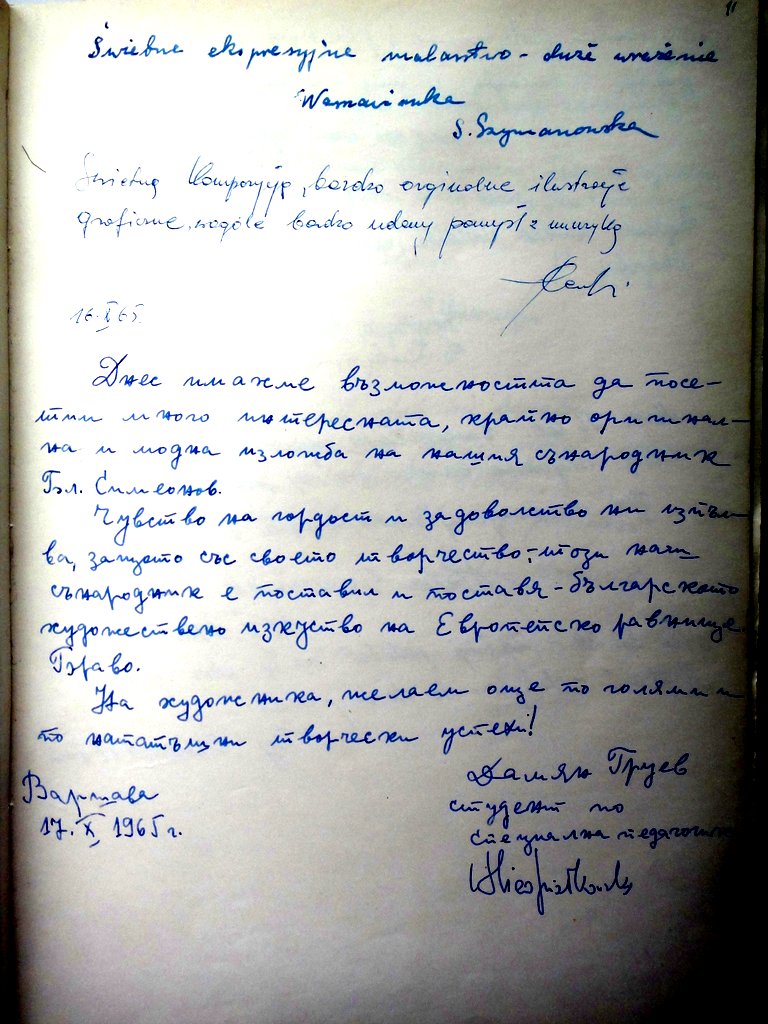 11
Świetne ekspresyjne malarstwo - duże wrażenie
Warszawianka
S. Szymanowska
Świetna kompozycja, bardzo orginalne ilustracje
graficzne, wogóle bardzo udany pomysł z muzyką
16.X.65.
Днес имахме възможността да посе-
тим много интересната, крайно оригинал-
на и модна изложба на нашия сънародник
Бл. Симеонов.
Чувство на гордост и задоволство ни изпъл-
ва, защото със своето творчество, този наш
сънародник е поставил и поставя - българското
художествено изкуство на Европейско равнище.
Браво.
На художника, желаем още по големи и
по нататъшни творчески успехи!
Варшава
17.X.1965 г.
Дамян Груев
студент по
специална педагогика